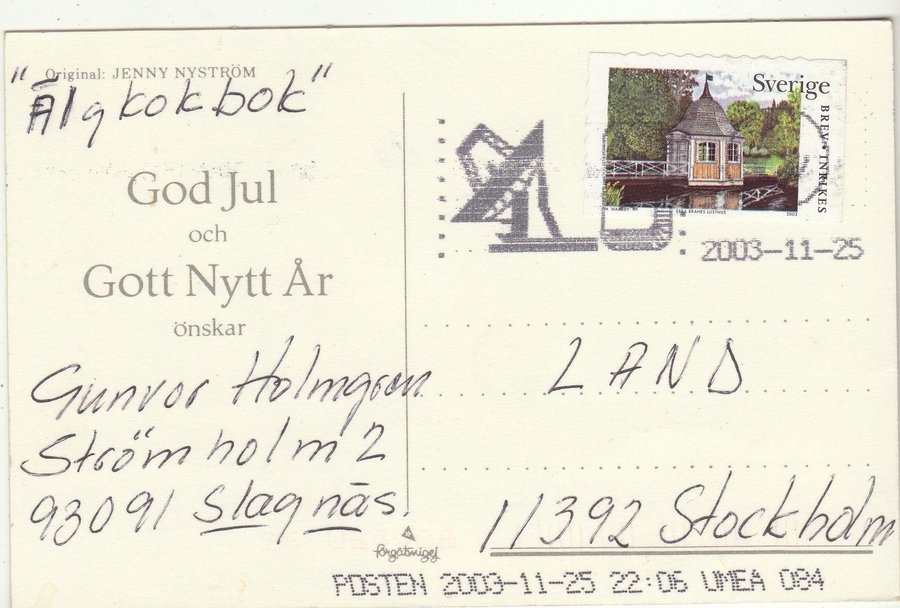 Original: JENNY NYSTRÖM
"Älgkokbok"
God Jul
och
Gott Nytt År
önskar
Gunvor Holmgren
Strömholm 2
93091 Slagnäs
förgätmigej
Sverige
BREV • INRIKES
2003
2003-11-25
LAND
11392 Stockholm
POSTEN 2003-11-25 22:06 UMEA 084